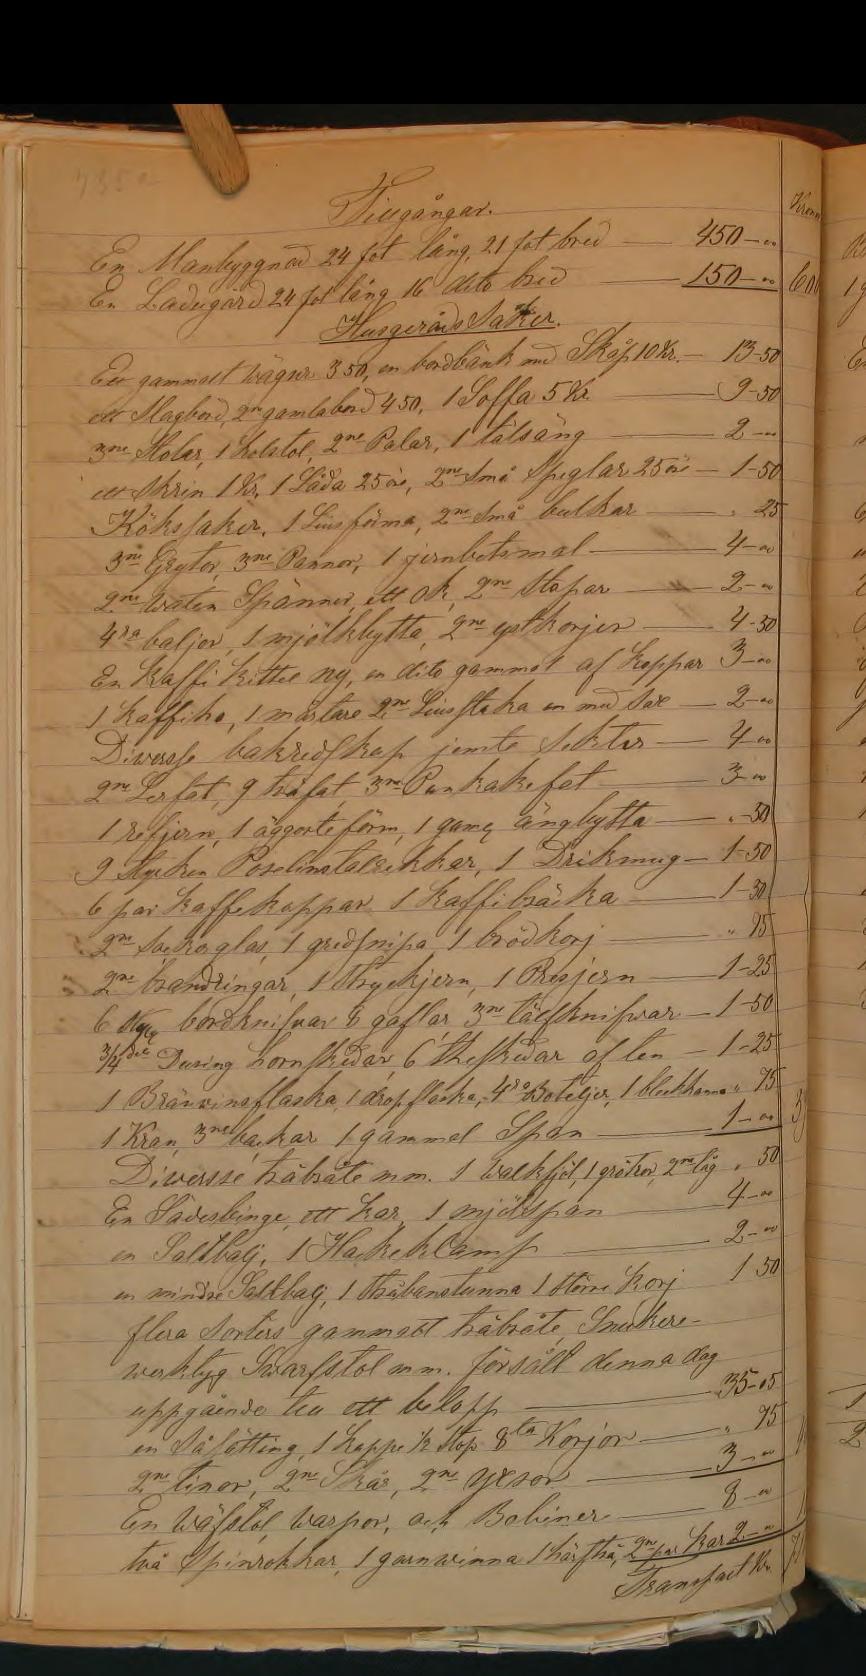 Tillgångar.
En Manbyggnad 24 fot lång, 21 fot bred — 450-00
En Ladugård 24 fot lång 16 dito bred — 150-00
Husgeråds Saker.
Ett gammalt vägur 350, en bordbänk med Skåp 10 Kr. — 13-50
ett Slagbord, 2ne gamla bord 450, 1 Soffa 5 Kr — 9-50
3ne Stolar, 1 2ne Palar, 1 tälsäng — 2-00
ett Skrin 1 Kr, 1 Låda 25 öre, 2ne Små Speglar 25 öre — 1-50
Kökssaker, 1 Liusforma, 2ne Små — " 25
3ne Grytor, 3ne Pannor, 1 — 4-00
2ne waten Spänner, ett Ok, 2ne Stopar — 2-00
4ra baljor, 1 mjölkbytta, 2ne ystkorjer — 4-50
En Kaffi Kittel ny, en dito gammal af Koppar 3-00
1 Kaffiho, 1 mortare 2ne Liusstaka en med Sax — 2-00
Diversse bakredskap jemte — 4-00
2ne Lerfat, 9 träfat, 3ne Pankakefat — 3-00
1 refjern, 1 äggosteform, 1 gam ångbytta — " 50
9 Stycken 1 Drikmug — 1-50
6 par Kaffekoppar 1 Kaffibräcka — 1-30
2ne Sockerglas, 1 gredsnipa, 1 brödkorj — " 75
2ne brandringar, 1 Strykjern, 1 Presjern — 1-25
6 Styc bordknifvar 8 gaflar 3ne täljknifvar — 1-50
3/4 Dusing hornskedar, 6 theskedar af ten — 1-25
1 Bränvinsflaska, 1 dropflaska, 4ra Boteljer, 1 " 75
1 Kran, 3ne backar 1 gammal Span — 1-00
Diversse träbråte mm. 1 1 2ne tåg " 50
En Sädesbinge, ett Kar, 1 mjölspan — 4-00
en Saltbalj, 1 Hackeklamp — 2-00
en mindre Saltbalj, 1 1 större Korj 1 50
flera Sorters gammalt träbråte, Snickere-
verktyg Svarfstol mm. försålt denna dag
uppgående till ett belopp — 35-05
en 1 Kappe ½ Stop 8ta Korjor — " 75
2ne tinor, 2ne Skär, 2ne yxsor — 3-00
En Wäfstol, warpor, och Bobiner — 8-00
två Spinrokkar, 1 garnvinna 1 2ne par Kar 2-00
Transport Kr.